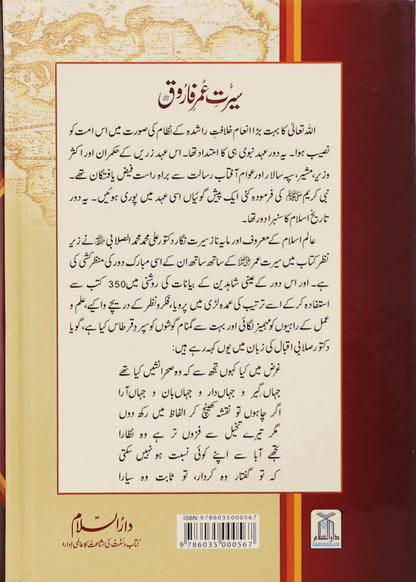 سیرتِ عُمر فارُوق
اللہ تعالیٰ کا بہت بڑا انعام خلافتِ راشدہ کے نظام کی صورت میں اس امت کو
نصیب ہوا۔ یہ دور عہد نبوی ہی کا امتداد تھا۔ اس عہد زریں کے حکمران اور اکثر
وزیر، مشیر، سپہ سالار اور عوام آفتاب رسالت سے براہ راست فیض یافتگان تھے۔
نبی کریم ﷺ کی فرمودہ کئی ایک پیش گوئیاں اسی عہد میں پوری ہوئیں۔ یہ دور
تاریخ اسلام کا سنہرا دور تھا۔
عالم اسلام کے معروف اور مایہ ناز سیرت نگار دکتور علی محمد محمد الصلابی نے زیر
نظر کتاب میں سیرت عمر کے ساتھ ساتھ ان کے اسی مبارک دور کی منظر کشی کی
ہے۔ اور اس دور کے عینی شاہدین کے بیانات کی روشنی میں 350 کتب سے
استفادہ کر کے اسے ترتیب کی عمدہ لڑی میں پرو دیا، فکر و نظر کے دریچے وا کیے، علم و
عمل کے راہیوں کو مہمیز لگائی اور بہت سے گمنام گوشوں کو سپردِ قرطاس کیا ہے، گویا
دکتور صلابی اقبال کی زبان میں یوں کہہ رہے ہیں:
غرض میں کیا کہوں تجھ سے کہ وہ صحرا نشیں کیا تھے
جہاں گیر و جہاں دار و جہاں بان و جہاں آرا
اگر چاہوں تو نقشہ کھینچ کر الفاظ میں رکھ دوں
مگر تیرے تخیل سے فزوں تر ہے وہ نظارا
تجھے آبا سے اپنے کوئی نسبت ہو نہیں سکتی
کہ تو گفتار وہ کردار، تو ثابت وہ سیارا
دارُالسلام
کتاب و سنت کی اشاعت کا عالمی ادارہ
ISBN: 9786035000567
9 786035 000567
دارالسلام